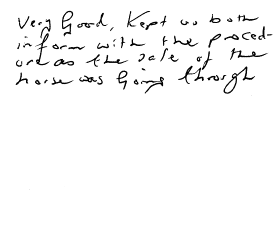 Very Good, Kept us both
inform with the proced-
ure as the sale of the
horse was going through